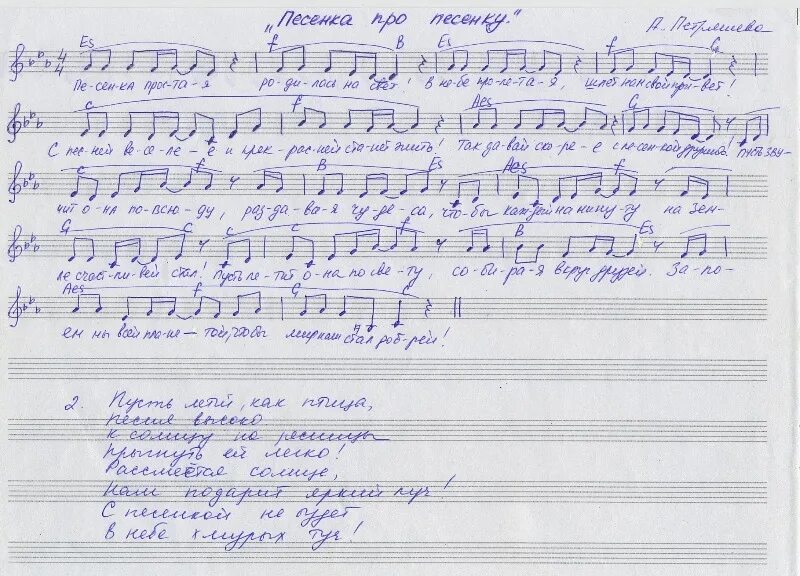 „Песенка про песенку."
А. Петряшева
Es f B Es f
Пе-сен-ка прос-та-я ро-ди-лась на свет! В не-бе про-ле-та-я, шлёт нам свой при-вет!
c f Aes G
С пес-ней ве-се-ле-е и прек-рас-ней ста-нет жить! Так да-вай ско-ре-е с пе-сен-кой дружить, пусть зву-
c f B Es Aes f
чит о-на пов-сю-ду, раз-да-ва-я чу-де-са, что-бы каж-дый на ми-ну-ту на Зем-
G c c f B Es
ле счаст-ли-вей стал! Пусть ле-тит о-на по све-ту, со-би-ра-я вкруг друзей. За-по-
Aes f G c
ем мы всей пла-не-той, что-бы мир наш стал доб-рей!
2. Пусть летит, как птица,
песня высоко
К солнцу на ресницы
Прыгнуть ей легко!
Рассмеётся солнце,
Нам подарит яркий луч!
С песенкой не будет
В небе хмурых туч!